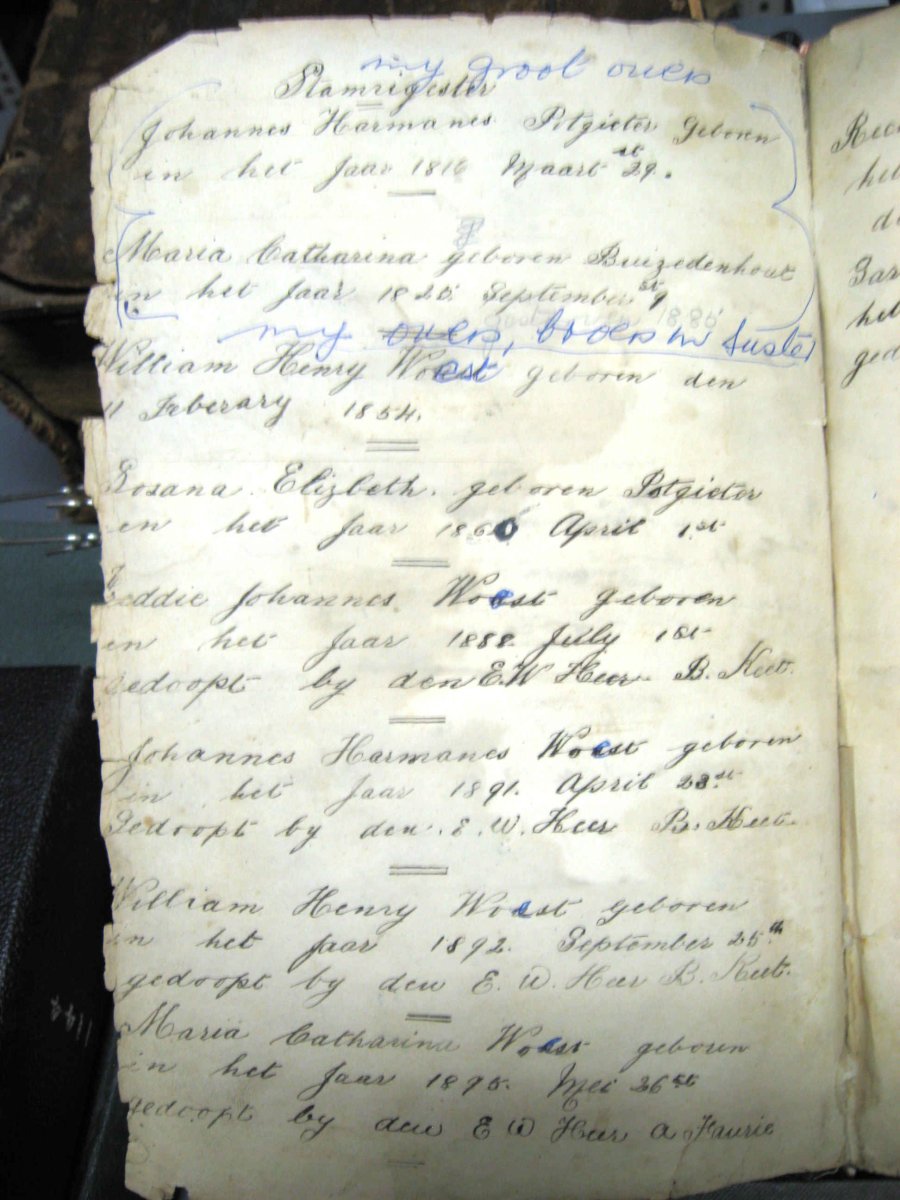 my groot ouers
Stamrigester
Johannes Harmanes Potgieter Geboren
in het Jaar 1816 Maart 29.st
Maria Catharina geboren Buizedenhout
in het Jaar 1825 September 9st
1885
my ouers, broers en suster
William Henry Woest geboren den
11 Frberary 1854.
Rosana Elizbeth. geboren Potgieter
en het Jaar 1860 April 1.st
Feddie Johannes Woest geboren
en het Jaar 1888. Jully 1st
gedoopt by den E.W Heer B. Keet.
Johannes Harmanes Woest geboren
in het Jaar 1891. April 23.st
Gedoopt by den. E. W. Heer B. Keet.
William Henry Woest geboren
in het Jaar 1892. September 25th
gedoopt by den E. W. Heer B. Keet.
Maria Catharina Woest geboren
in het Jaar 1895. Mei 26st
gedoopt by den E W Heer A Faurie
het
het
ged